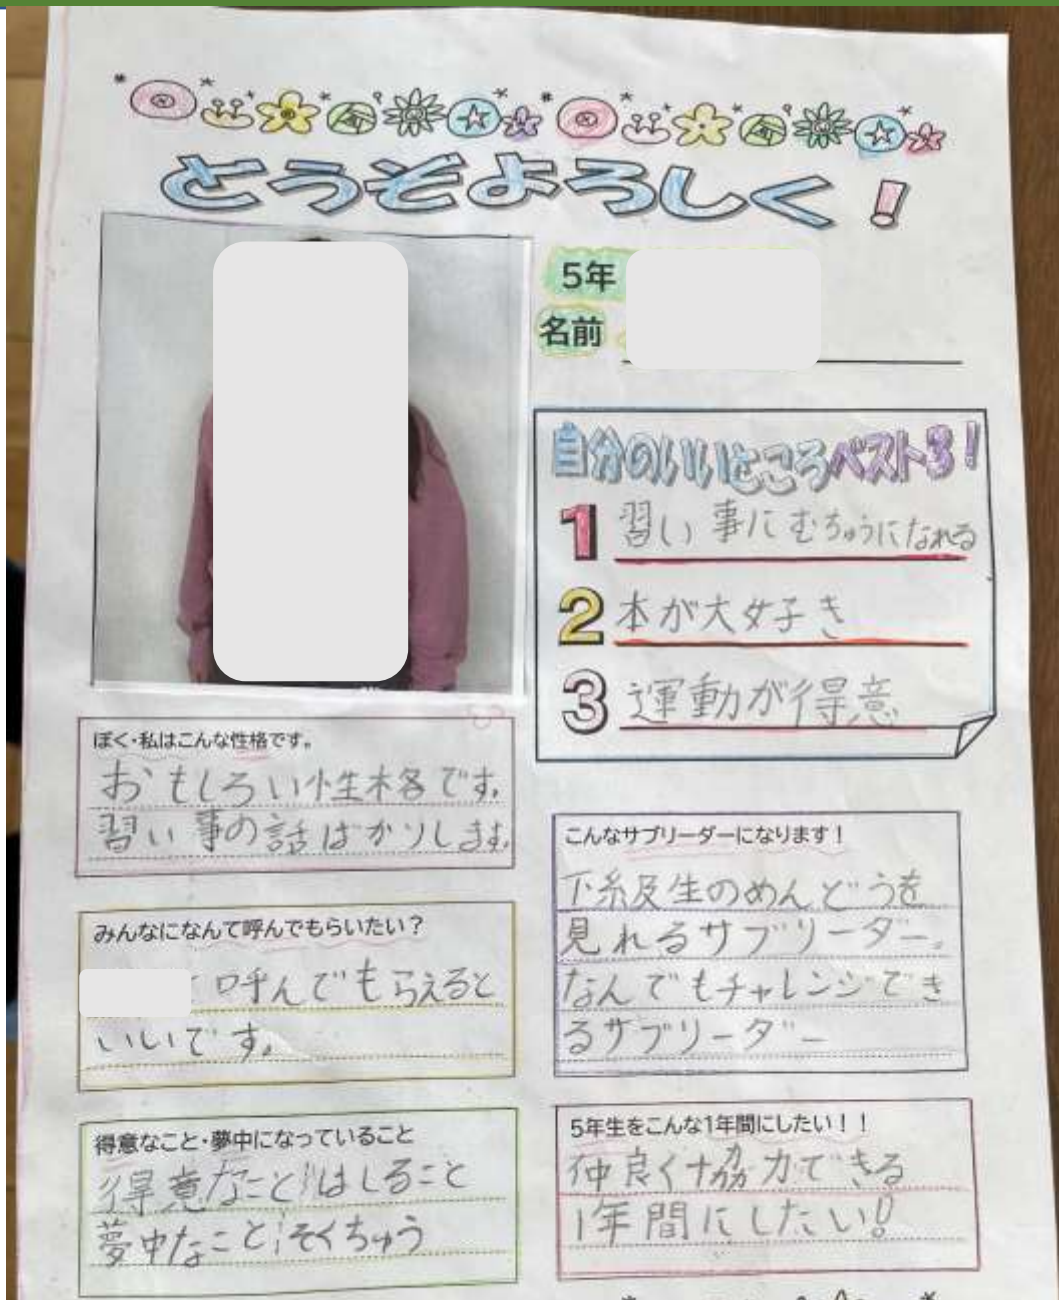 どうぞよろしく!
5年
名前
自分のいいところベスト3!
1 習い事にむちゅうになれる
2 本が大好き
3 運動が得意
ぼく・私はこんな性格です。
おもしろい性格です。
習い事の話ばかりします。
みんなになんて呼んでもらいたい?
呼んでもらえると
いいです。
得意なこと・夢中になっていること
得意なこと はしること
夢中なこと そくちゅう
こんなサブリーダーになります!
下級生のめんどうを
見れるサブリーダー。
なんでもチャレンジでき
るサブリーダー
5年生をこんな1年間にしたい!!
仲良く協力できる
1年間にしたい!!